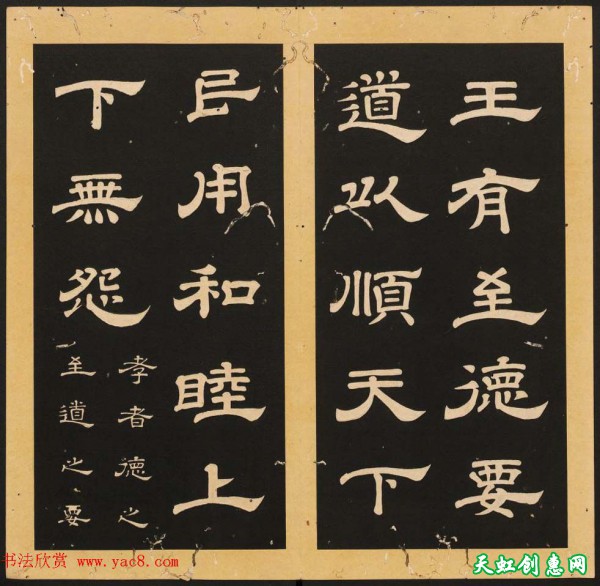 王有至德要
道以順天下
民用和睦上
下無怨
孝者德之
至道之要
书法欣赏 www.yac8.com
天虹创惠网